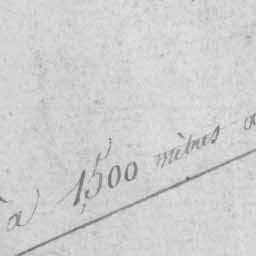 à 1,500 mètres